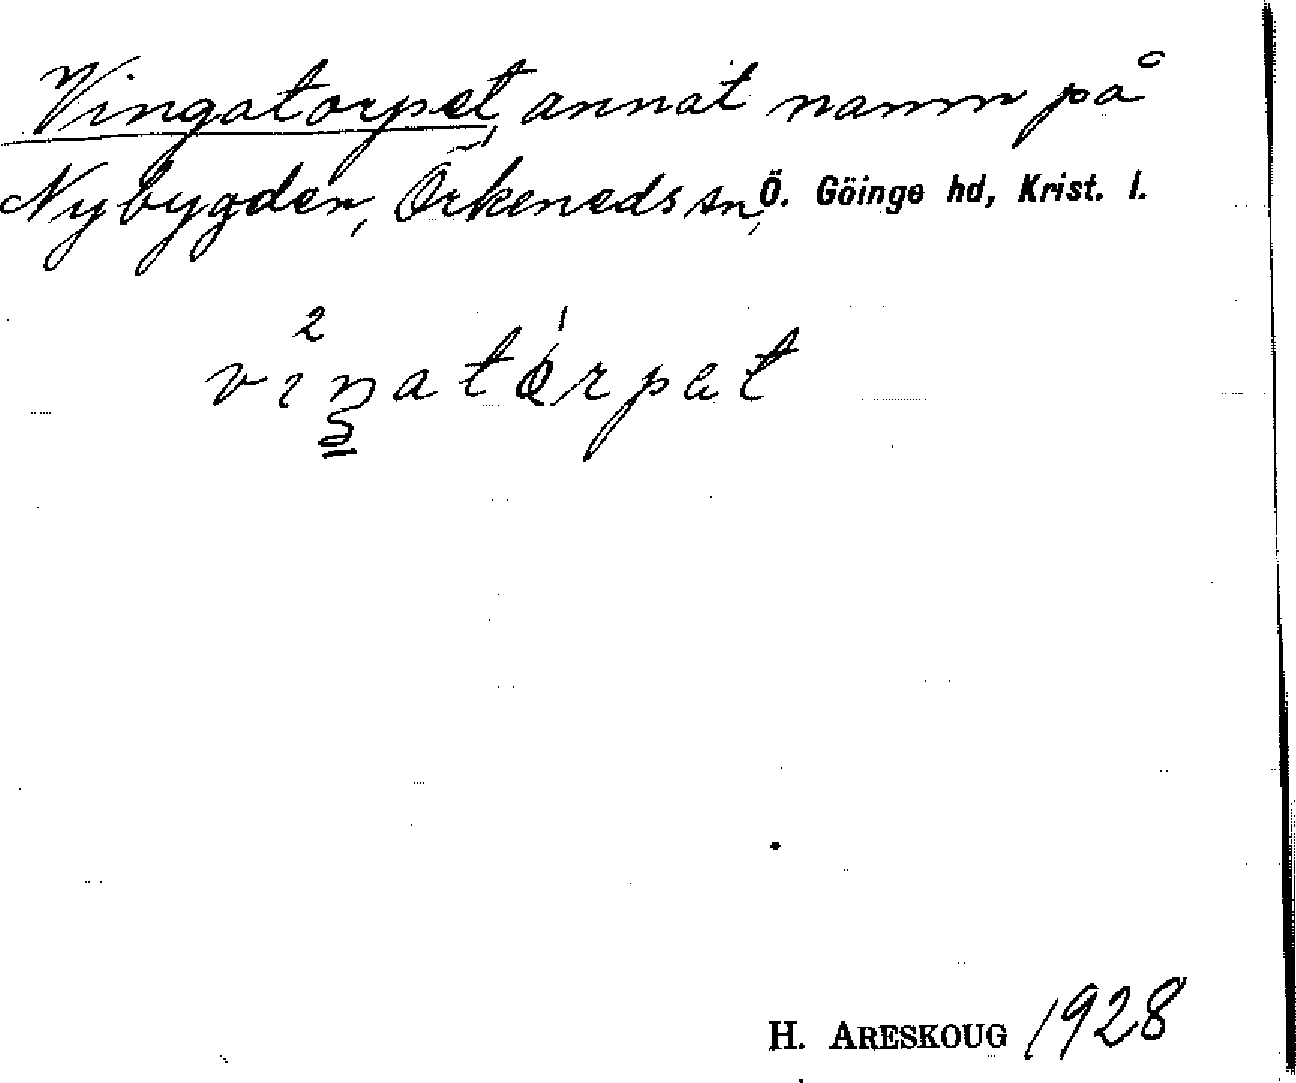 Vingatorpet, annat namn på
Nybygden, Örkeneds sn, Ö. Göinge hd, Krist. l.
vi²ŋatɷ́rpet
H. ARESKOUG 1928